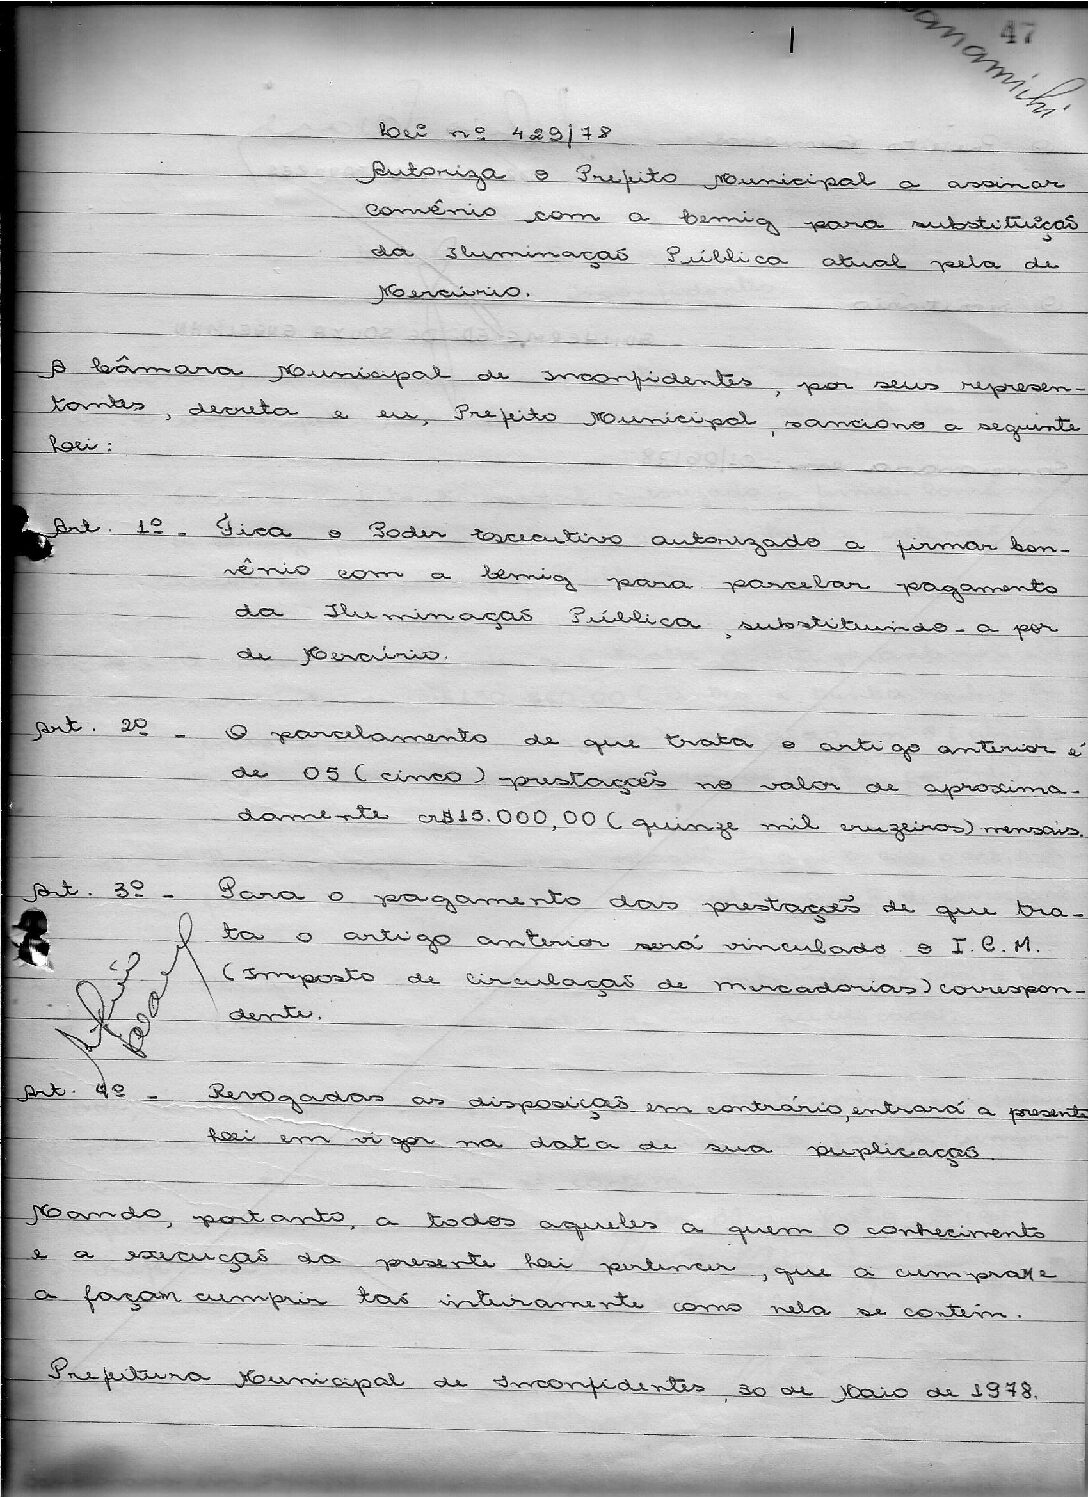 47
Lei nº 429/78
Autoriza o Prefeito Municipal a assinar
convênio com a Cemig para substituição
da Iluminação Pública atual pela de
Mercúrio.
A Câmara Municipal de Inconfidentes, por seus represen-
tantes, decreta e eu, Prefeito Municipal, sanciono a seguinte
Lei:
Art. 1º - Fica o Poder Executivo autorizado a firmar Con-
vênio com a Cemig para parcelar pagamento
da Iluminação Pública, substituindo-a por
de Mercúrio.
Art. 2º - O parcelamento de que trata o artigo anterior é
de 05 (cinco) prestações no valor de aproxima-
damente cr$15.000,00 (quinze mil cruzeiros) mensais.
Art. 3º - Para o pagamento das prestações de que tra-
ta o artigo anterior será vinculado o I.C.M.
(Imposto de Circulação de Mercadorias) correspon-
dente.
Art. 4º - Revogadas as disposição em contrário, entrará a presente
Lei em vigor na data de sua puplicação.
Mando, portanto, a todos aqueles a quem o conhecimento
e a execução da presente Lei pertencer, que a cumpram e
a façam cumprir tão inteiramente como nela se contém.
Prefeitura Municipal de Inconfidentes, 30 de Maio de 1978.